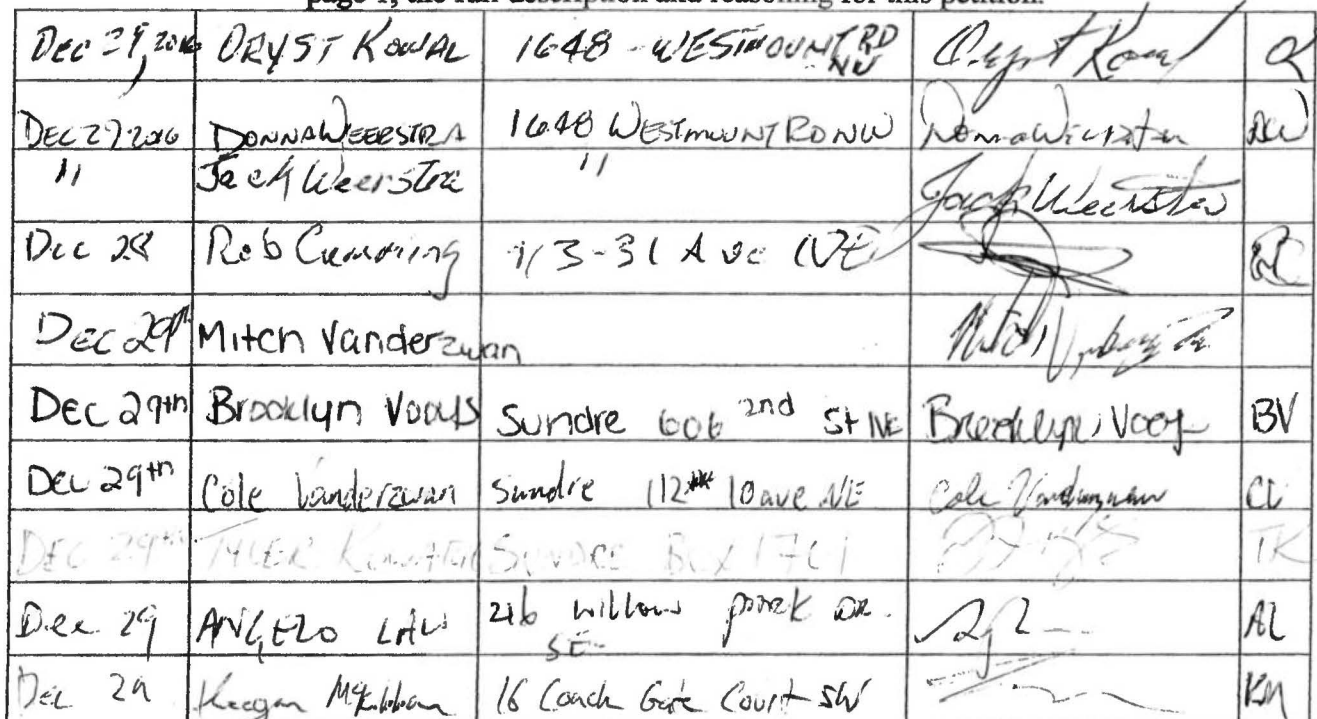 page 1, the full description and reasoning for this petition.
Dec 29, 2016 ORYST KOWAL 1648 - WESTMOUNT RD NW Oryst Kowal OK
DEC 29 2016 DONNA WEERSTRA 1648 WESTMOUNT RD NW Donna Weerstra DW
" Jack Weerstra " Jack Weerstra
Dec 28 Rob Cumming 113-31 Ave NE RC
Dec 29th Mitch Vanderzwan
Dec 29th Brooklyn Sundre 606 2nd St NE Brooklyn BV
Dec 29th Cole Vanderzwan Sundre 112 10 ave NE Cole Vanderzwan CV
DEC 29th TYLER SUNDRE BOX 1761 TK
Dec 29 ANGELO LAU 216 willow park DR. AL
SE
Dec 29 Keegan 16 Coach Gate Court SW KM